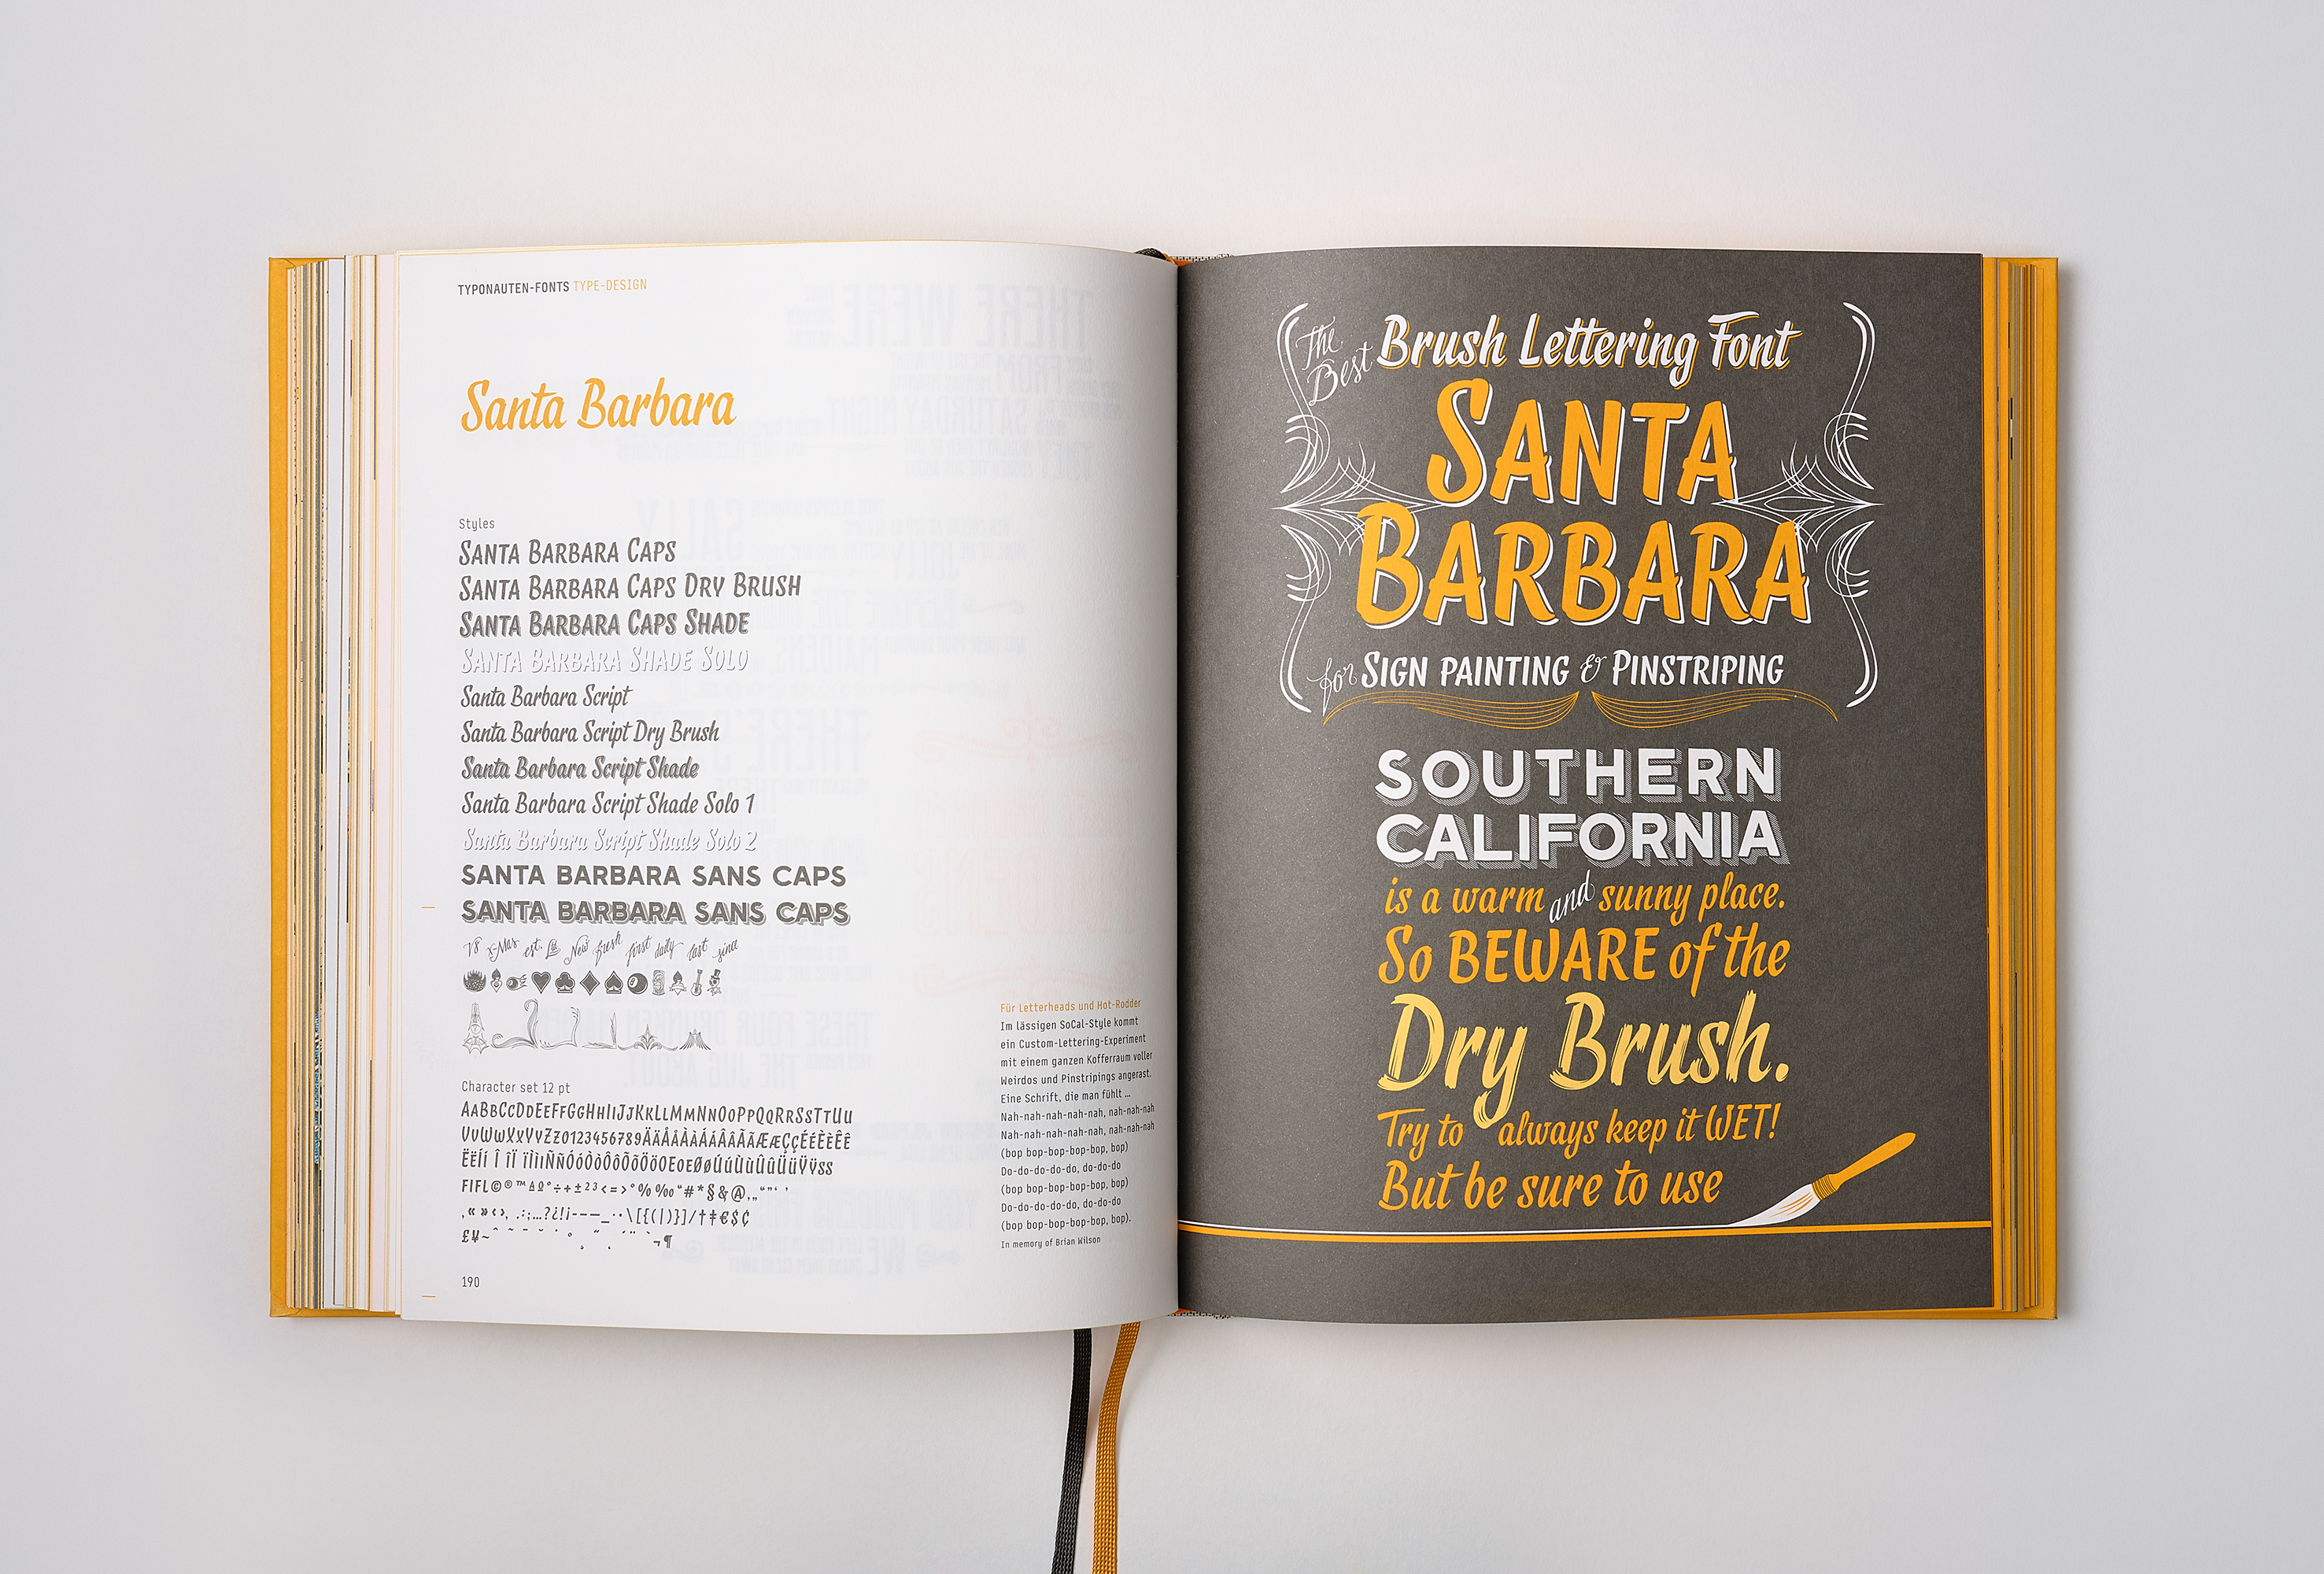 TYPONAUTEN-FONTS TYPE-DESIGN
Santa Barbara
Styles
SANTA BARBARA CAPS
SANTA BARBARA CAPS DRY BRUSH
SANTA BARBARA CAPS SHADE
SANTA BARBARA SHADE SOLO
Santa Barbara Script
Santa Barbara Script Dry Brush
Santa Barbara Script Shade
Santa Barbara Script Shade Solo 1
Santa Barbara Script Shade Solo 2
SANTA BARBARA SANS CAPS
SANTA BARBARA SANS CAPS
V8 x-Mas est. Ltd New fresh first daily last since
Character set 12 pt
AABBCCDDEEFFGGHHIIJJKKLLMMNNOOPPQQRRSSTTUU
VVWWXXYYZZ0123456789ÄÄÅÅÀÀÁÁÂÂÃÃÆÆÇÇÉÉÈÈÊÊ
190
Für Letterheads und Hot-Rodder
Im lässigen SoCal-Style kommt
ein Custom-Lettering-Experiment
mit einem ganzen Kofferraum voller
Weirdos und Pinstripings angerast.
Eine Schrift, die man fühlt …
Nah-nah-nah-nah-nah, nah-nah-nah
Nah-nah-nah-nah-nah, nah-nah-nah
(bop bop-bop-bop-bop, bop)
Do-do-do-do-do, do-do-do
(bop bop-bop-bop-bop, bop)
Do-do-do-do-do, do-do-do
(bop bop-bop-bop-bop, bop).
In memory of Brian Wilson
The Best Brush Lettering Font
SANTA
BARBARA
for SIGN PAINTING & PINSTRIPING
SOUTHERN
CALIFORNIA
is a warm and sunny place.
So BEWARE of the
Dry Brush.
Try to always keep it WET!
But be sure to use